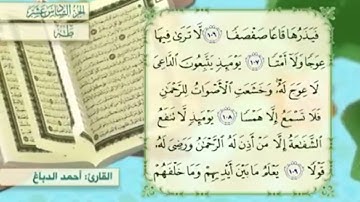 الجزء السادس عشر
طه
فَيَذَرُهَا قَاعًا صَفْصَفًا ١٠٦ لَّا تَرَىٰ فِيهَا
عِوَجًا وَلَآ أَمْتًا ١٠٧ يَوْمَئِذٍ يَتَّبِعُونَ ٱلدَّاعِىَ
لَا عِوَجَ لَهُۥ ۖ وَخَشَعَتِ ٱلْأَصْوَاتُ لِلرَّحْمَٰنِ
فَلَا تَسْمَعُ إِلَّا هَمْسًا ١٠٨ يَوْمَئِذٍ لَّا تَنفَعُ
ٱلشَّفَٰعَةُ إِلَّا مَنْ أَذِنَ لَهُ ٱلرَّحْمَٰنُ وَرَضِىَ لَهُۥ
قَوْلًا ١٠٩ يَعْلَمُ مَا بَيْنَ أَيْدِيهِمْ وَمَا خَلْفَهُمْ
القارئ: أحمد الدباغ